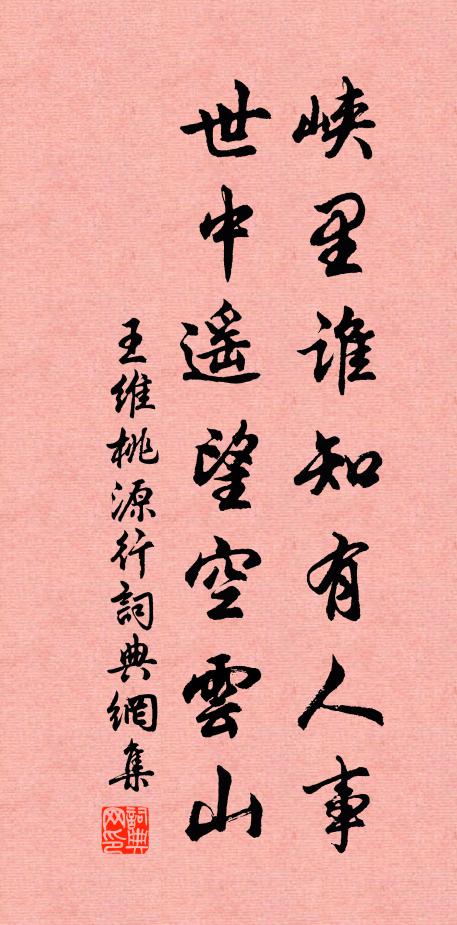 峡里誰知有人事
世中遥望空雲山
王維桃源行詞典網集
詞典网印